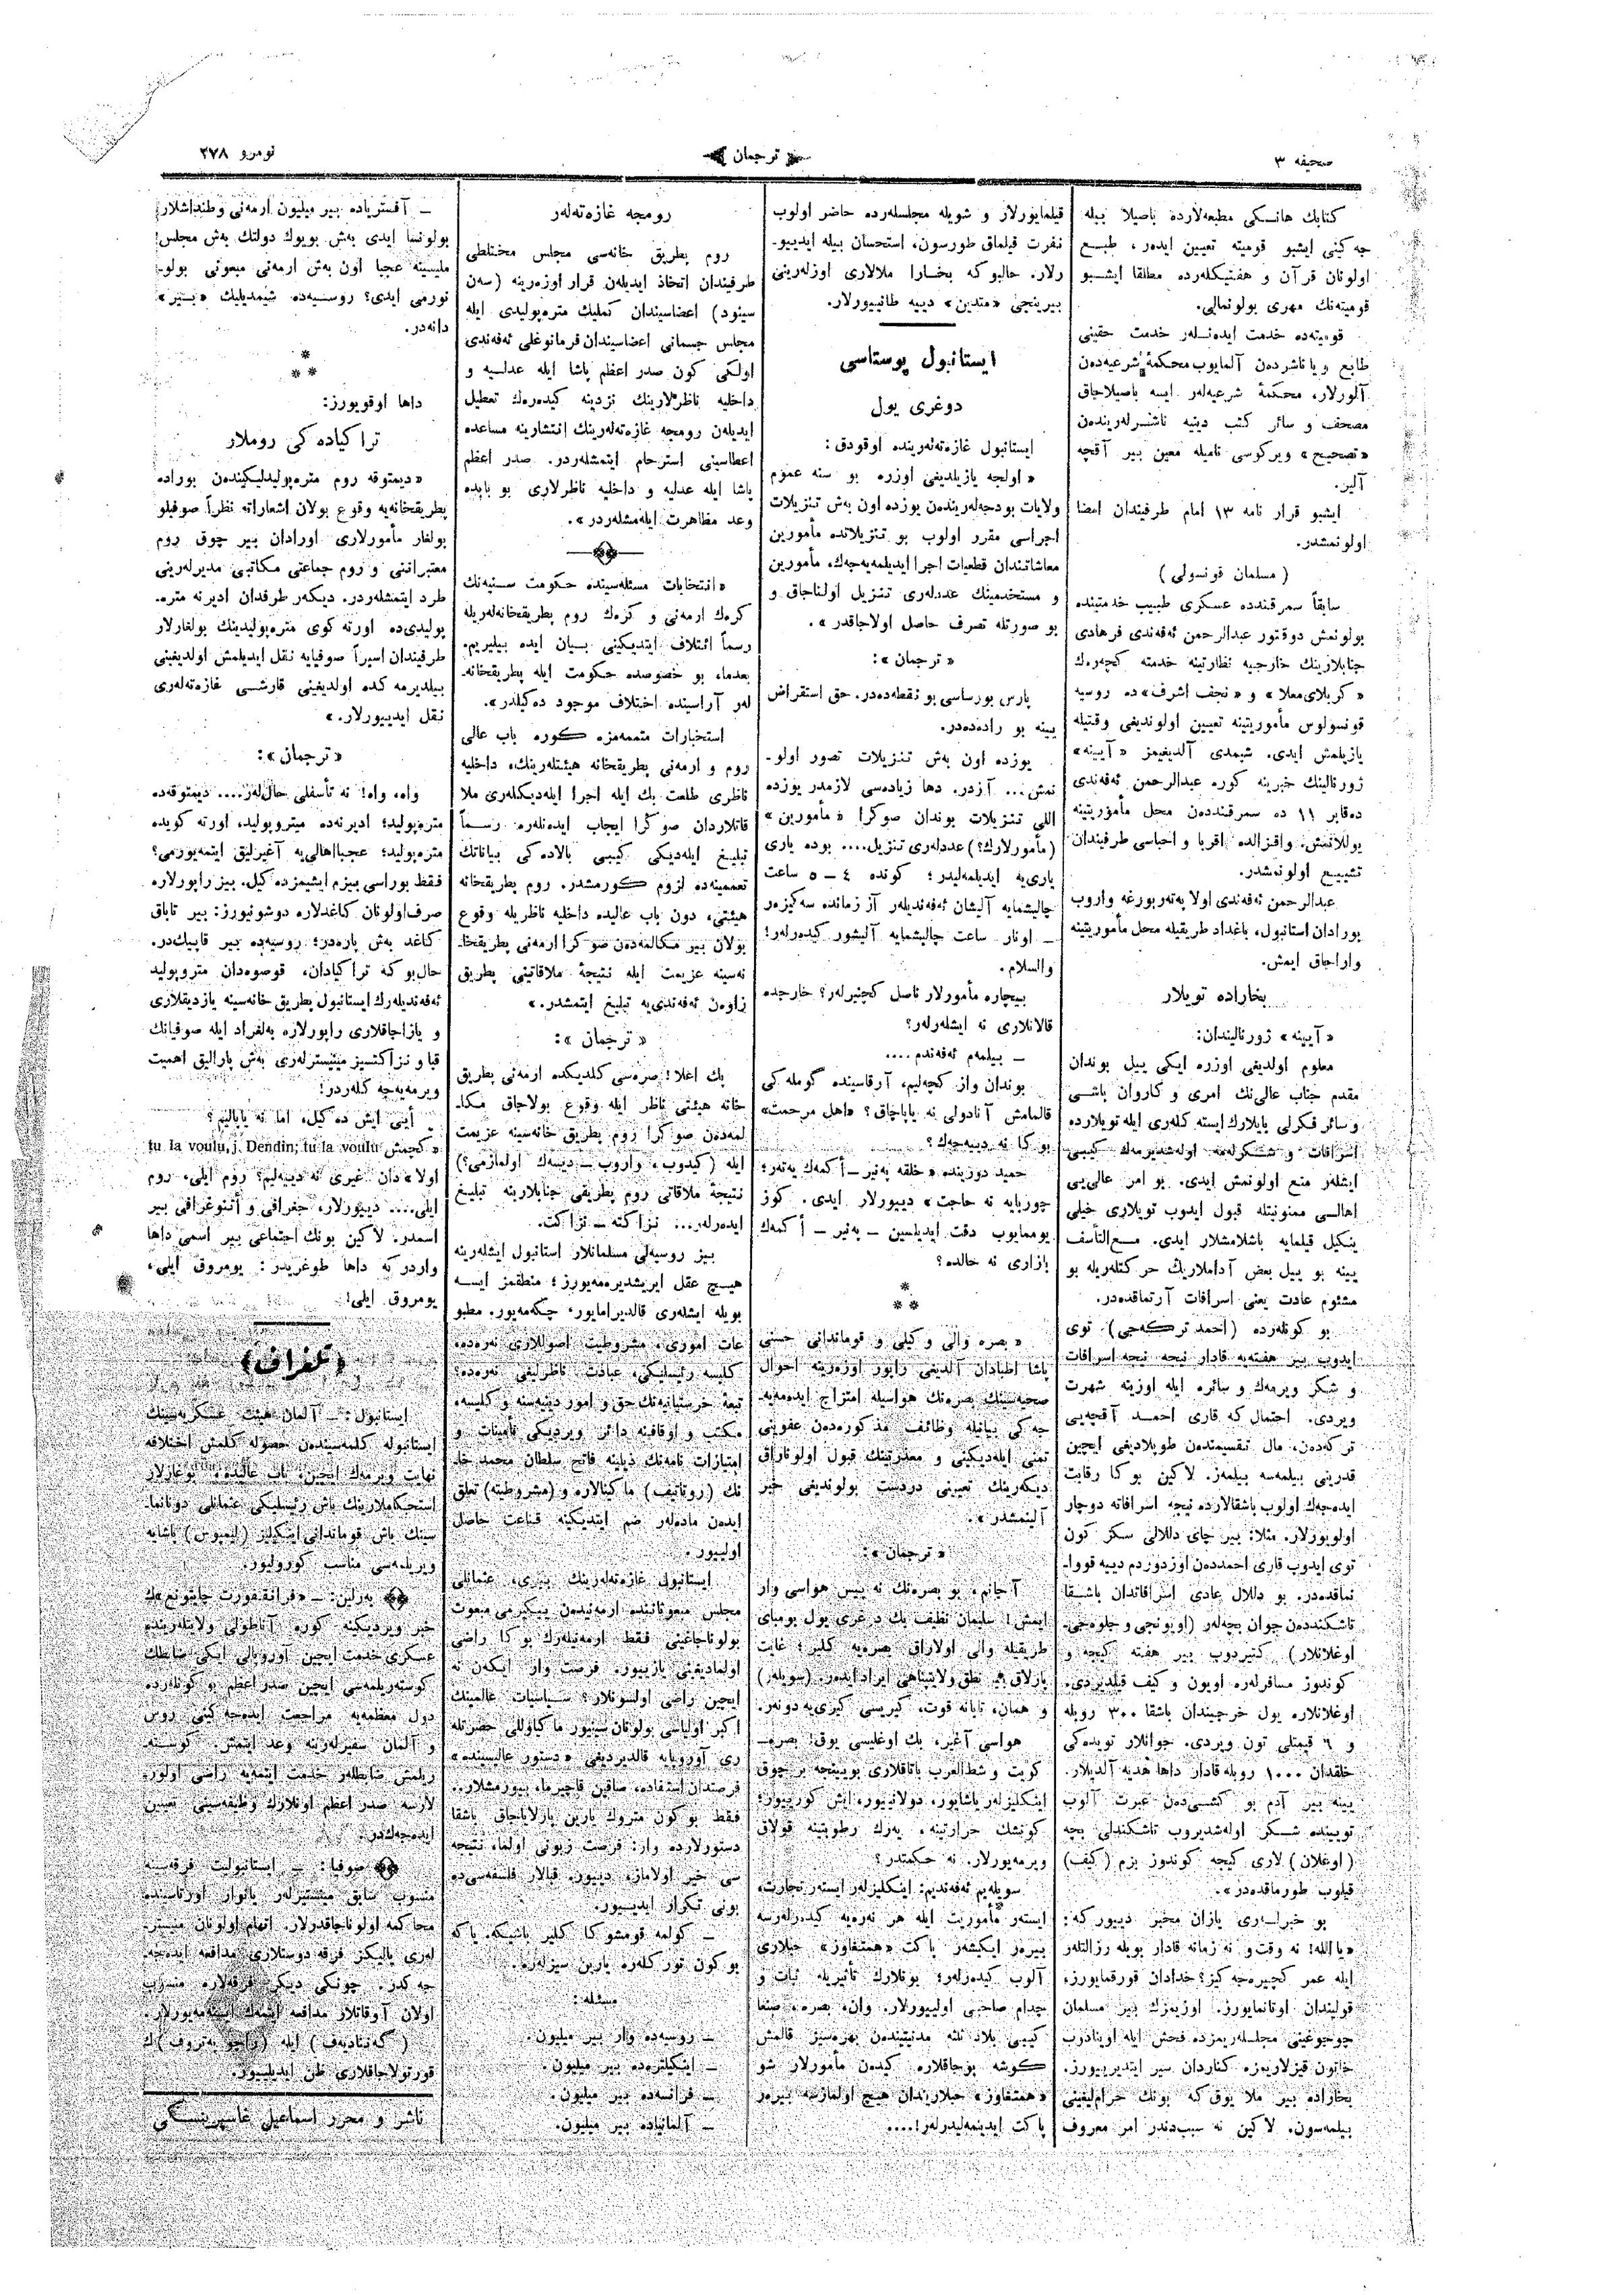 صحيفه ۳
ترجمان
نومرو ۲۷۸
كتابك هانسكى مطبعه‌لارده باصيلا بيله
جه‌كينى ايشبو قوميته تعيين ايده‌ر، طبع
اولونان قرآن و هفتيكلەرده مطلقا ايشبو
قوميته‌نك مهرى بولونمالى.
قوميته‌ده خدمت ايده‌نلەر خدمت حقينى
طابع ويا ناشردەن آلمايوب محكمهٔ شرعيه‌دەن
آلورلار، محكمهٔ شرعيه‌لەر ايسه باصيلاجاق
مصحف و سائر كتب دينيه ناشرلەريندەن
«تصحيح» ويركوسى ناميله معين بير آقچه
آلين.
ايشبو قرار نامه ۱۳ امام طرفيندان امضا
اولونمشدر.
( مسلمان قونسولى )
سابقاً سمرقندده عسكرى طبيب خدمتينده
بولونمش دوقتور عبدالرحمن ئەفەندى فرهادى
جنابلارينك خارجيه نظارتينه خدمته كچەرەك
«كربلاى‌معلا» و «نجف اشرف»ده روسيه
قونسولوس مأموريتينه تعيين اولونديغى وقتيله
يازيلمش ايدى. شيمدى آلديغيمز «آيينه»
ژورنالينك خبرينه كوره عبدالرحمن ئەفەندى
دەقابر ۱۱ ده سمرقنددەن محل مأموريتينه
يوللانمش، واقزالده اقربا و احباسى طرفيندان
تشييع اولونمشدر.
عبدالرحمن ئەفەندى اولا پەتەربورغه واروب
بورادان استانبول، باغداد طريقيله محل مأموريتينه
واراجاق ايمش.
بخاراده تويلار
«آيينه» ژورناليندان:
معلوم اولديغى اوزره ايكى ييل بوندان
مقدم جناب عالى‌نك امرى و كاروان باشى
و سائر فكرلى بايلارك ايسته كلەرى ايله تويلارده
اسرافات و شكرلەمه اولەشديرمەك كيبى
ايشلەر منع اولونمش ايدى. بو امر عالى‌يى
اهالى ممنونيتله قبول ايدوب تويلارى خيلى
ينكيل قيلمايه باشلامشلار ايدى. مع‌التأسف
يينه بو ييل بعض آداملارينك حركتلەريله بو
مشئوم عادت يعنى اسرافات آرتماقده‌در.
بو كونلەرده (احمد تركەجى) توى
ايدوب بير هفته‌يه قادار نيجه نيجه اسرافات
و شكر ويرمەك و سائره ايله اوزينه شهرت
ويردى. احتمال كه قارى احمد آقچه‌يى
تركەدەن، مال تقسيمندەن طوپلاديغى ايچين
قدرينى بيلمەسه بيلمەز. لاكين بوكا رقابت
ايدەجەك اولوب باشقالارده نيجه اسرافاته دوچار
اولويورلار. مثلا: بير چاى دللالى سكز كون
توى ايدوب قارى احمددەن اوزدوردم دييه قووا-
نماقده‌در. بو دللال عادى اسرافاتدان باشقا
تاشكنددەن جوان بچه‌لەر (اويونجى و جلوه‌جى
اوغلانلار) كتيردوب بير هفته كيجه و
كوندوز مسافرلەره اويون و كيف قيلديردى.
اوغلانلاره يول خرجيندان باشقا ۳۰۰ روبله
و ٦ قيمتلى تون ويردى. جوانلار تويده‌كى
خلقدان ۱۰۰۰ روبله قادار داها هديه آلديلار.
يينه بير آدم بو كشىدەن عبرت آلوب
تويينده شكر اولەشديروب تاشكندلى بچه
(اوغلان) لارى كيجه كوندوز بزم (كيف)
قيلوب طورماقده‌در».
بو خبرلەرى يازان مخبر دييوركه:
«يا الله! نه وقت و نه زمانه قادار بويله رزالتلەر
ايله عمر كچيره‌جه‌كيز؟ خدادان قورقمايورز،
قوليندان اوتانمايورز. اوزيمزك بير مسلمان
چوجوغينى مجلسلەريمزده فحش ايله اويناذوب
خاتون قيزلاريمزه كناردان سير ايتديرييورز.
بخاراده بير ملا يوق كه بونك حرام‌ليغينى
بيلمەسون. لاكين نه سبب‌دندر امر معروف
قيلمايورلار و شويله مجلسلەرده حاضر اولوب
نفرت قيلماق طورسون، استحسان بيله ايدييو-
رلار. حالبوكه بخارا ملالارى اوزلەرينى
بيرينجى «متدين» دييه طانييورلار.
ايستانبول پوستاسى
دوغرى يول
ايستانبول غازه‌ته‌لەرينده اوقودق:
«اولجه يازيلديغى اوزره بو سنه عموم
ولايات بودجه‌لەريندەن يوزده اون بەش تنزيلات
اجراسى مقرر اولوب بو تنزيلاتده مأمورين
معاشاتندان قطعيات اجرا ايديلميه‌جەك، مأمورين
و مستخدمينك عددلەرى تنزيل اولناجاق و
بو صورتله تصرف حاصل اولاجاقدر».
«ترجمان»:
پارس بورساسى بو نقطه‌ده‌در. حق استقراض
يينه بو راده‌ده‌در.
يوزده اون بەش تنزيلات تصور اولو-
نمش... آزدر. دها زياده‌سى لازمدر يوزده
اللى تنزيلات بوندان صوكرا «مأمورين»
(مأمورلارك؟) عددلەرى تنزيل.... بوده يارى
يارى‌يه ايديلمه‌ليدر؛ كونده ٤ – ٥ ساعت
چاليشمايه آليشان ئەفەنديلەر آز زمانده سەكيزەر
– اونار ساعت چاليشمايه آليشور كيدەرلەر!
والسلام.
بيچاره مأمورلار ناصل كچنيرلەر؟ خارجده
قالانلارى نه ايشلەرلەر؟
– بيلمەم ئەفەندم....
بوندان واز كچەليم، آرقاسينده گومله‌كى
قالمامش آنادولى نه ياپاچاق؟ «اهل مرحمت»
بوكا نه دييه‌جەك؟
حميد دورينده «خلقه پەنير – أكمەك يەتەر؛
چوربايه نه حاجت» دييورلار ايدى. كوز
يوممايوب دقت ايديلسين – پەنير – أكمەك
بازارى نه حالده؟
*
* *
«بصره والى وكيلى و قوماندانى حسنى
پاشا اطبادان آلديغى راپور اوزەرينه احوال
صحيه‌سينك بصره‌نك هواسيله امتزاج ايده‌مه‌يه-
جه‌كى بيانيله وظائف مذكوره‌دەن عفوينى
تمنى ايله‌ديكينى و معذرتينك قبول اولوناراق
ديكەرينك تعيينى دردست بولونديغى خبر
آلينمشدر».
«ترجمان»:
آجانم، بو بصره‌نك نه پيس هواسى وار
ايمش! سليمان نظيف بك دوغرى يول بومباى
طريقيله والى اولاراق بصره‌يه كلير؛ غايت
پارلاق بير نطق ولايتپناهى ايراد ايدەر. (سويلەر)
و همان، تابانه قوت، كيريسى كيرى‌يه دونەر.
هواسى آغير، بك اوغليسى يوق! بصره
كويت و شط‌العرب باتاقلارى بويينجه بر چوق
اينكليزلەر ياشايور، دولانييور، ايش كورييور؛
كونشك حرارتينه، يەرك رطوبتينه قولاق
ويرمەيورلار. نه حكمتدر؟
سويله‌يم ئەفەنديم: اينكليزلەر ايستەر تجارت،
ايستەر مأموريت ايله هر نەره‌يه كيدەرلەرسه
بيرەر ايكيشەر پاكت «همتفاوز» حبلارى
آلوب كيدەرلەر؛ بونلارك تأثيريله ثبات و
چدام صاحبى اولييورلار. وان، بصره، صنعا
كيبى بلاد ثلثه مدنيتيندەن بهره‌سيز قالمش
كوشه بوجاقلاره كيدەن مأمورلار شو
«همتفاوز» حبلاريندان هيچ اولمازسه بيرەر
پاكت ايدينمه‌ليدرلەر!....
رومجه غازه‌ته‌لەر
روم بطريق خانه‌سى مجلس مختلطى
طرفيندان اتخاذ ايديلەن قرار اوزەرينه (سەن
سينود) اعضاسيندان كمليك متره‌پوليدى ايله
مجلس جسمانى اعضاسيندان قرمانوغلى ئەفەندى
اولكى كون صدر اعظم پاشا ايله عدليه و
داخليه ناظرلارينك نزدينه كيدەرەك تعطيل
ايديلەن رومجه غازه‌ته‌لەرينك انتشارينه مساعده
اعطاسينى استرحام ايتمشلەردر. صدر اعظم
پاشا ايله عدليه و داخليه ناظرلارى بو بابده
وعد مظاهرت ايله‌مشلەردر».
«انتخابات مسئله‌سينده حكومت سنيه‌نك
كرەك ارمەنى و كرەك روم بطريقخانه‌لەريله
رسماً ائتلاف ايتديكينى بيان ايده بيليريم.
بعدما، بو خصوصده حكومت ايله پطريقخانه-
لەر آراسينده اختلاف موجود دەكيلدر».
استخبارات متممه‌مزه كوره باب عالى
روم و ارمەنى پطريقخانه هيئتلەرينك، داخليه
ناظرى طلعت بك ايله اجرا ايله‌ديكلەرى ملا
قاتلاردان صوكرا ايجاب ايدەنلەره رسماً
تبليغ ايله‌ديكى كيبى بالاده‌كى بياناتك
تعميمنده لزوم كورمشدر. روم پطريقخانه
هيئتى، دون باب عاليده داخليه ناظريله وقوع
بولان بير مكالمه‌دەن صوكرا ارمەنى پطريقخا-
نه‌سينه عزيمت ايله نتيجهٔ ملاقاتينى پطريق
زاوەن ئەفەندى‌يه تبليغ ايتمشدر.»
«ترجمان»:
بك اعلا! صره‌سى كلديكده ارمەنى پطريق
خانه هيئتى ناظر ايله وقوع بولاجاق مكا-
لمه‌دەن صوكرا روم پطريق خانه‌سينه عزيمت
ايله (كيدوب، واروب – ديسەك اولمازمى؟)
نتيجهٔ ملاقاتى روم پطريقى جنابلارينه تبليغ
ايدەرلەر... نزاكته – نزاكت.
بيز روسيه‌لى مسلمانلار استانبول ايشلەرينه
هيچ عقل ايريشديره‌مه‌يورز؛ منطقمز ايسه
بويله ايشلەرى قالديرامايور، چكەمه‌يور. مطبو
عات امورى، مشروطيت اصوللارى نەره‌ده،
كليسه رئيسليكى، عبادت ناظرليغى نەره‌ده؟
تبعهٔ خرستيانيه‌نك حق و امور دينيه‌سنه و كليسه،
مكتب و اوقافينه دائر ويرديكى تأمينات و
امتيازات نامه‌نك ذيلينه فاتح سلطان محمد خا-
نك (روتاتيف) ماكينالاره و (مشروطيته) تعلق
ايدەن ماده‌لەر ضم ايتديكينه قناعت حاصل
اولييور.
ايستانبول غازه‌ته‌لەرينك بيرى، عثمانلى
مجلس مبعوثاننده ارمەنيدەن ييكيرمى مبعوث
بولوناجاغينى فقط ارمەنيلەرك بوكا راضى
اولماديغينى يازييور. فرصت وار ايكەن نه
ايچين راضى اولسونلار؟ سياسيات عالمينك
اكبر اولياسى بولونان سينيور ماكياوللى حضرتلە
رى آوروپايه قالديرديغى «دستور عاليسينده»
فرصتدان استفاده، صاقين قاچيرما، بيورمشلار..
فقط بوكون متروك يارين پارلاياجاق باشقا
دستورلارده وار: فرصت زبونى اولما، نتيجه
سى خير اولاماز، دييور. قبالار فلسفه‌سى‌ده
بونى تكرار ايدييور.
– كولمه قومشوكا كلير باشيكه. ياكه
بوكون توركلەره يارين سيزلەره.
مسئله:
– روسيه‌ده وار بير ميليون.
– اينكلتره‌ده بير ميليون.
– فرانسه‌ده بير ميليون.
– آلمانياده بير ميليون.
– آفسترياده بير ميليون ارمەنى وطنداشلار
بولونسا ايدى بەش بويوك دولتك بەش مجلس
مليسينه عجبا اون بەش ارمەنى مبعوثى بولو-
نورمى ايدى؟ روسيه‌ده شيمديليك «بير»
دانه‌در.
*
* *
داها اوقويورز:
تراكياده كى روملار
«ديمتوقه روم متره‌پوليدليكيندەن بوراده
پطريقخانه‌يه وقوع بولان اشعاراته نظراً صوفيلو
بولغار مأمورلارى اورادان بير چوق روم
معتبراننى و روم جماعتى مكاتبى مديرلەرينى
طرد ايتمشلەردر. ديكەر طرفدان اديرنه متره-
پوليدى‌ده اورته كوى متره‌پوليدينك بولغارلار
طرفيندان اسيراً صوفيايه نقل ايديلمش اولديغينى
بيلديرمه‌كده اولديغينى قارشى غازه‌ته‌لەرى
نقل ايدييورلار.»
«ترجمان»:
واه، واه! نه تأسفلى حال‌لەر.... ديمتوقه‌ده
متره‌پوليد؛ اديرنه‌ده ميتروپوليد، اورته كويده
متره‌پوليد؛ عجبا اهالى‌يه آغيرليق ايتمه‌يورمى؟
فقط بوراسى بيزم ايشيمزده كيل. بيز راپورلاره
صرف اولونان كاغدلاره دوشونيورز: بير تاباق
كاغد بەش پاره‌در؛ روسيه‌ده بير قاپيك‌در.
حال‌بوكه تراكيادان، قوصوه‌دان متروپوليد
ئەفەنديلەرك ايستانبول پطريق خانه‌سينه يازديقلارى
و يازاجاقلارى راپورلاره بەلغراد ايله صوفيانك
قبا و نزاكتسيز مينيسترلەرى بەش پاراليق اهميت
ويرمه‌يه‌جه كلەردر!
أينى ايش دەكيل، اما نه ياپاليم؟
«كچمش tu la voulu, j. Dendin; tu la voulu
اولا»دان غيرى نه دييه‌ليم؟ روم ايلى، روم
ايلى.... دييورلار، جغرافى و أتنوغرافى بير
اسمدر. لاكين بونك اجتماعى بير اسمى داها
واردر كه داها طوغريدر: يومروق ايلى،
يومروق ايلى!
(تلغراف)
ايستانبول: – آلمان هيئت عسكريه‌سينك
ايستانبوله كلمه‌سيندەن حصوله كلمش اختلافه
نهايت ويرمەك ايچين، باب عاليده، بوغازلار
استحكاملارينك باش رئيسليكى عثمانلى دونانما-
سينك باش قوماندانى اينكليز (ليمپوس) پاشايه
ويريلمەسى مناسب كورولييور.
بەرلين: – «فرانقفورت چايتونغ»ك
خبر ويرديكينه كوره آناطولى ولايتلەرينده
عسكرى خدمت ايچين آوروپالى ايكى ضابطك
كوستەريلمەسى ايچين صدر اعظم بو كونلەرده
دول معظمه‌يه مراجعت ايده‌جه‌كينى روس
و آلمان سفيرلەرينه وعد ايتمش. كوسته-
ريلمش ضابطلەر خدمت ايتمه‌يه راضى اولور-
لارسه صدر اعظم اونلارك وظيفه‌سينى تعيين
ايده‌جەكدر.
صوفيا: – ايستانبولت فرقه‌سينه
منسوب سابق مينيسترلەر يانوار اورتاسينده
محاكمه اولوناجاقدرلار. اتهام اولونان مينيستر-
لەرى يالكيز فرقه دوستلارى مدافعه ايده‌جه-
جه‌كدر. چونكى ديكەر فرقه‌لاره منسوب
اولان آووقاتلار مدافعه ايتمەك ايسته‌مه‌يورلار.
(گەنناديەف) ايله (راديو پەتروف)ك
قورتولاجاقلارى ظن ايديلييور.
ناشر و محرر اسماعيل غاسپرينسكى